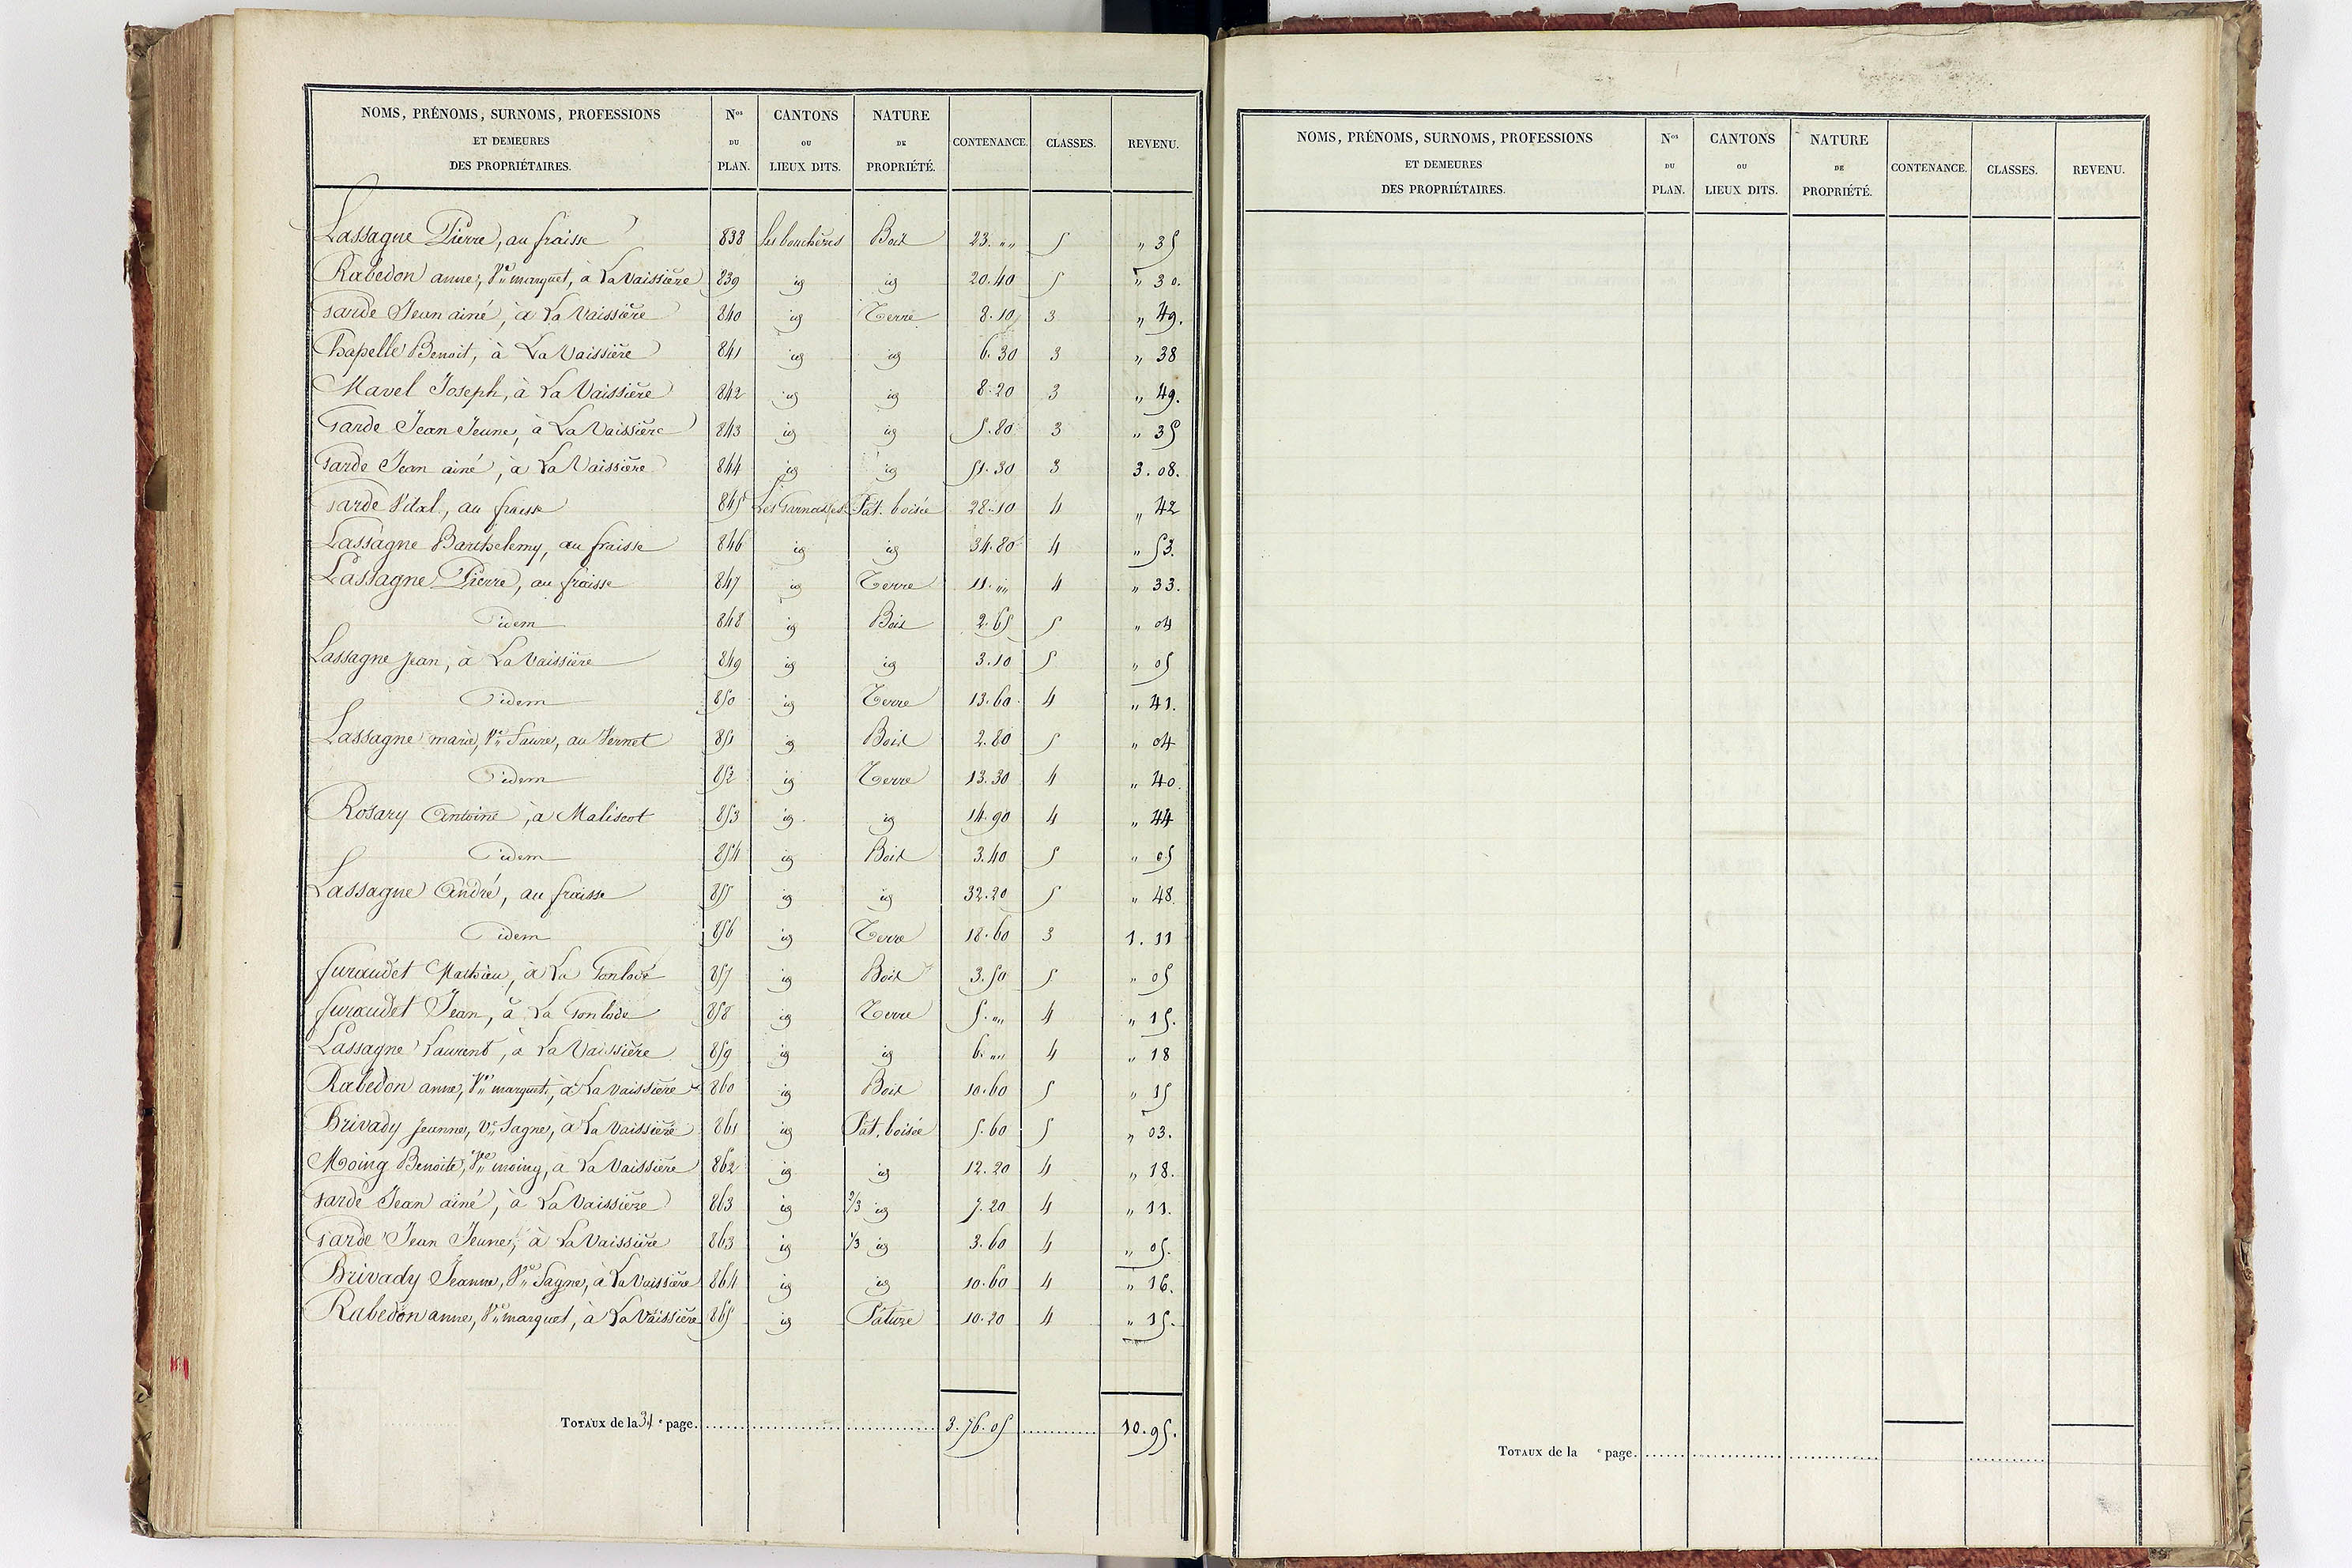 NOMS, PRÉNOMS, SURNOMS, PROFESSIONS ET DEMEURES DES PROPRIÉTAIRES. Nos DU PLAN. CANTONS OU LIEUX DITS. NATURE DE PROPRIÉTÉ. CONTENANCE. CLASSES. REVENU.
Lassagne Pierre, au fraisse 838 Les bouchères Bois 23. „„ 5 „ 35
Rabedon anne, Ve marquet, à La Vaissière 839 id id 20.40 5 „ 30.
Tarde Jean ainé, à La Vaissière 840 id Terre 8.10 3 „ 49.
Chapelle Benoit, à La Vaissière 841 id id 6.30 3 „ 38
Mavel Joseph, à La Vaissière 842 id id 8.20 3 „ 49.
Tarde Jean Jeune, à La Vaissière 843 id id 5.80 3 „ 35
Tarde Jean ainé, à La Vaissière 844 id id 51.30 3 3.08.
Tarde Vital, au fraisse 845 Les Pat. boisée 28.10 4 „ 42
Lassagne Barthelemy, au fraisse 846 id id 34.80 4 „ 53.
Lassagne Pierre, au fraisse 847 id Terre 11. „„ 4 „ 33.
idem 848 id Bois 2.65 5 „ 04
Lassagne Jean, à La Vaissière 849 id id 3.10 5 „ 05
idem 850 id Terre 13.60 4 „ 41.
Lassagne marie, Ve Faure, au Vernet 851 id Bois 2.80 5 „ 04
idem 852 id Terre 13.30 4 „ 40.
Rosary Antoine, à Maliscot 853 id id 14.90 4 „ 44
idem 854 id Bois 3.40 5 „ 05
Lassagne André, au fraisse 855 id id 32.20 5 „ 48.
idem 856 id Terre 18.60 3 1.11
furaudet Mathieu, à La 857 id Bois 3.50 5 „ 05
furaudet Jean, à La 858 id Terre 5. „„ 4 „ 15.
Lassagne Laurent, à La Vaissière 859 id id 6. „„ 4 „ 18
Rabedon anne, Ve marquet, à La Vaissière 860 id Bois 10.60 5 „ 15
Brivady Jeanne, Ve Sagne, à La Vaissière 861 id Pat. boisée 5.60 5 „ 03.
Moing Benoite, Ve moing, à La Vaissière 862 id id 12.20 4 „ 18.
Tarde Jean ainé, à La Vaissière 863 id 2/3 id 7.20 4 „ 11.
Tarde Jean Jeune, à La Vaissière 863 id 1/3 id 3.60 4 „ 05.
Brivady Jeanne, Ve Sagne, à La Vaissière 864 id id 10.60 4 „ 16.
Rabedon anne, Ve marquet, à La Vaissière 865 id Pature 10.20 4 „ 15.
TOTAUX de la 31 e page. 3.76.05 10.95.
NOMS, PRÉNOMS, SURNOMS, PROFESSIONS ET DEMEURES DES PROPRIÉTAIRES. Nos DU PLAN. CANTONS OU LIEUX DITS. NATURE DE PROPRIÉTÉ. CONTENANCE. CLASSES. REVENU.
TOTAUX de la e page.